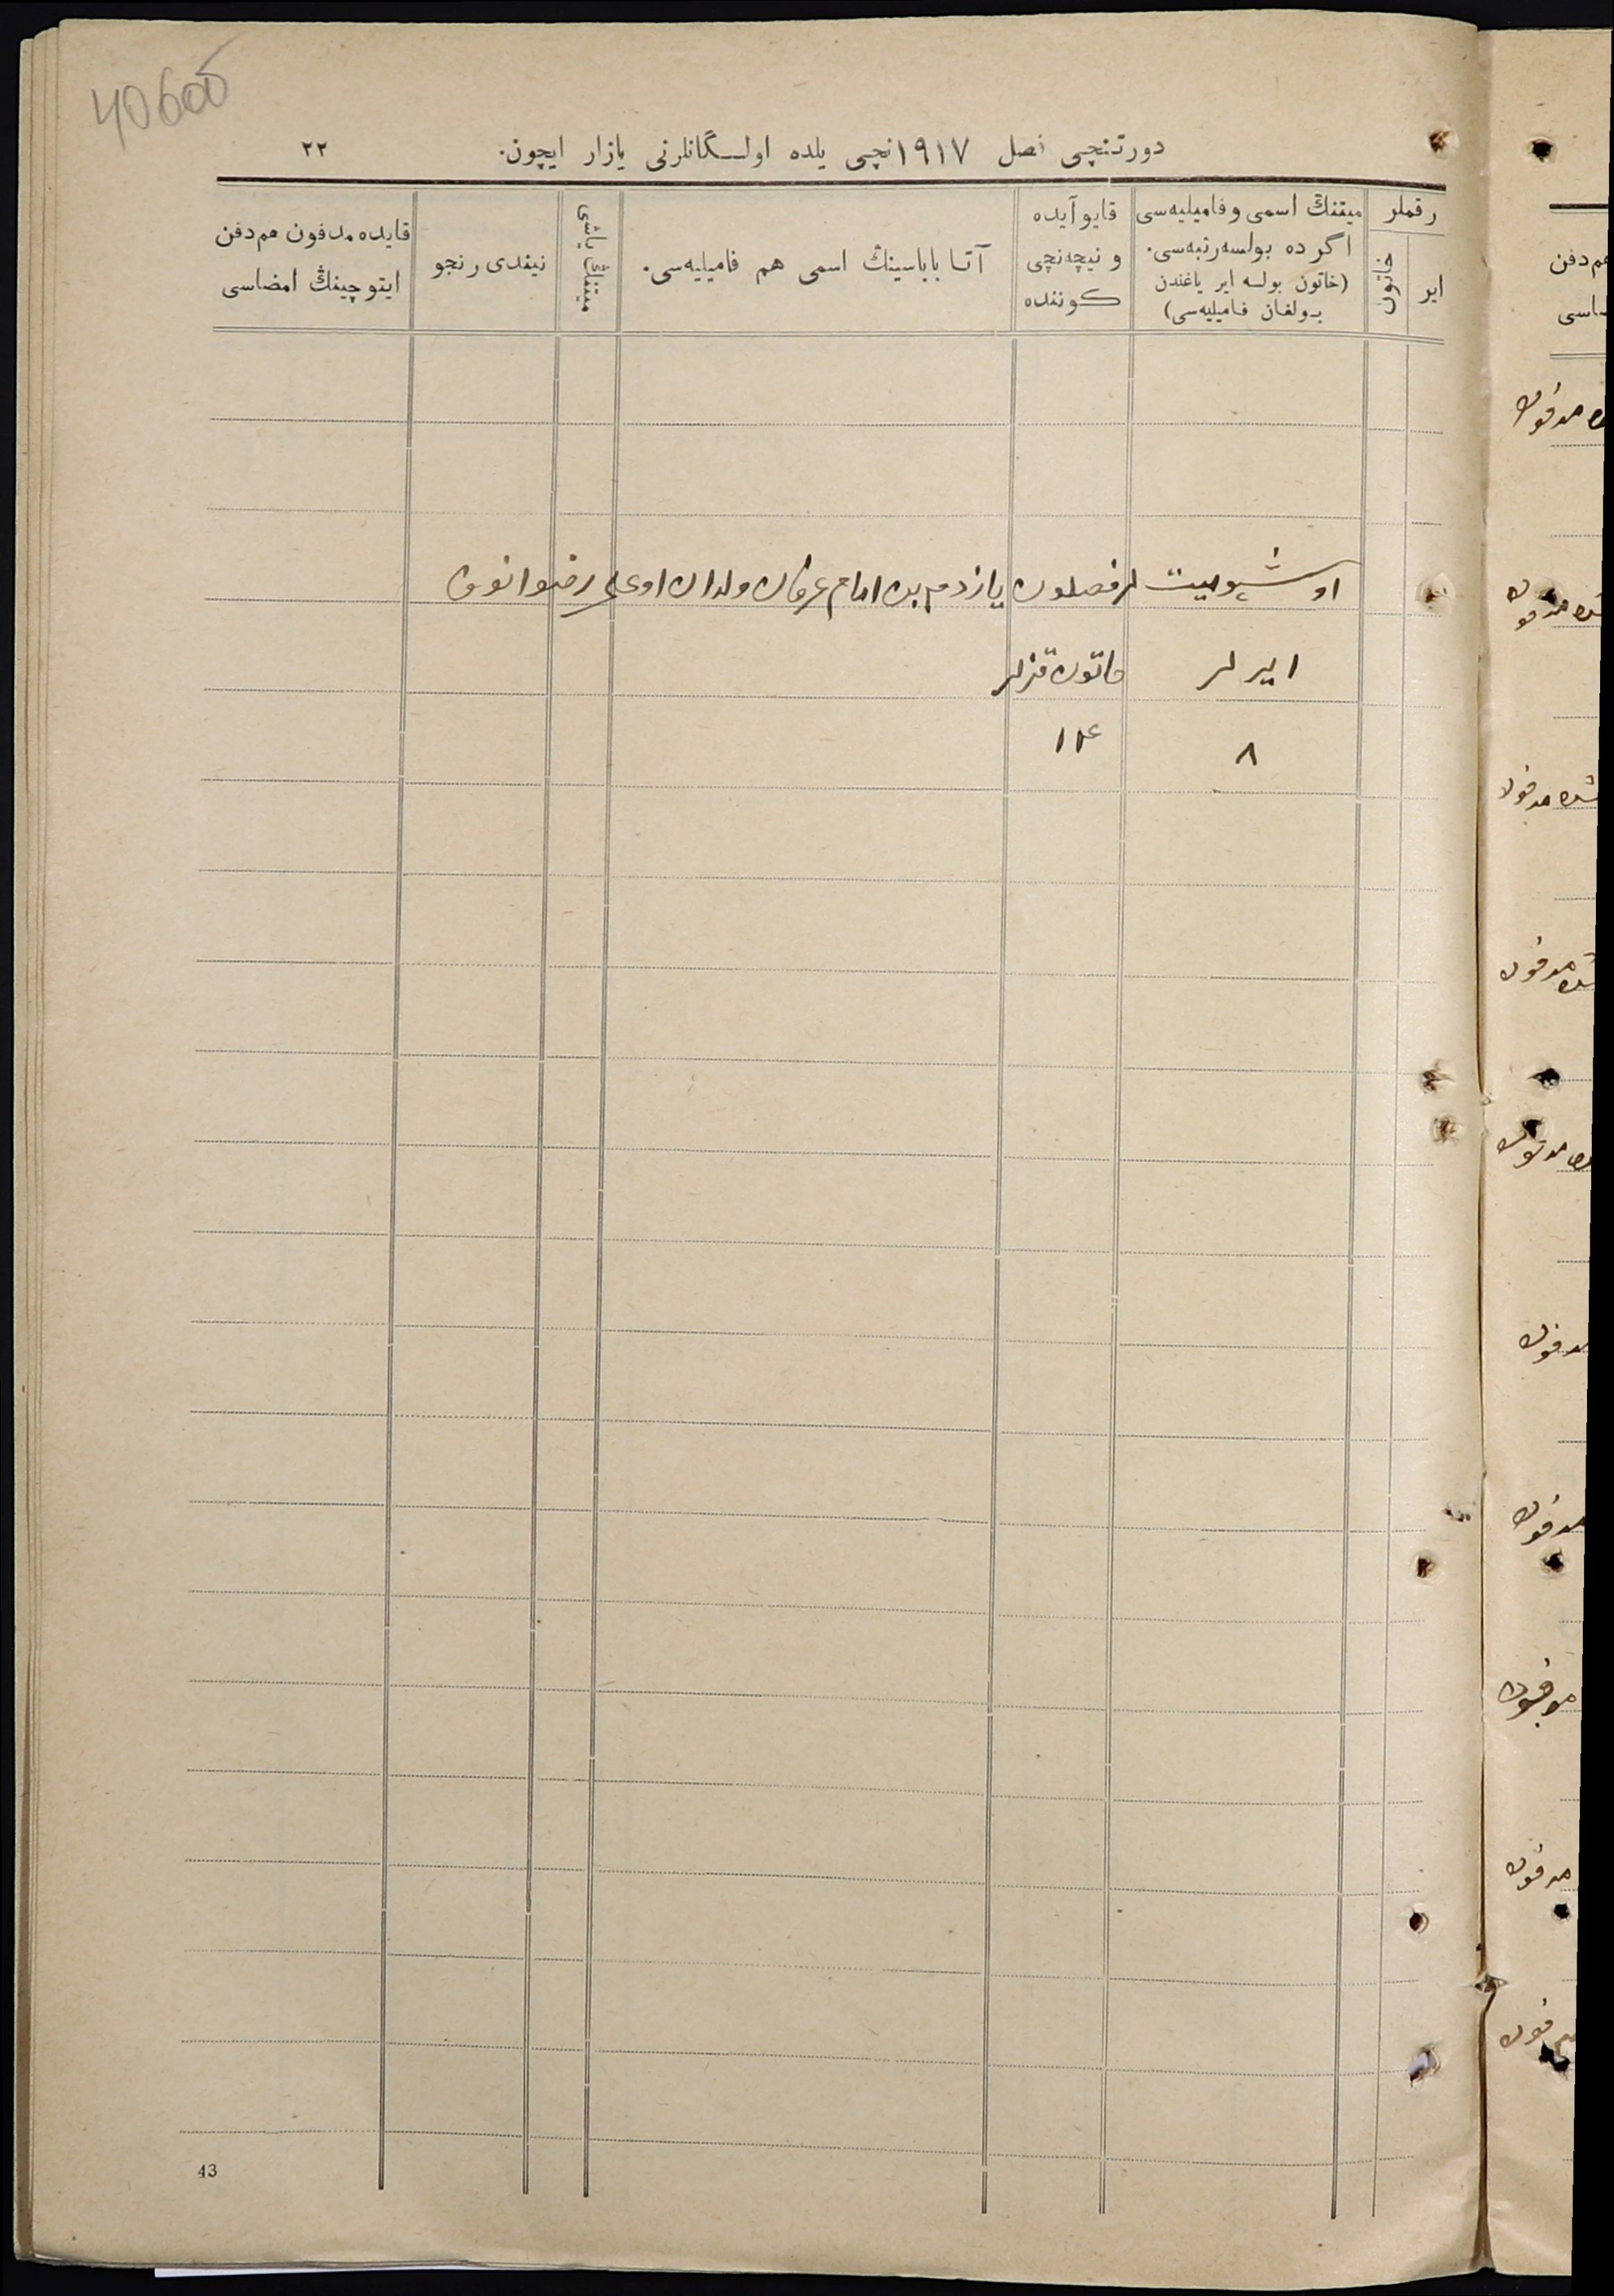 406об
دورتنچی فصل ۱۹۱۷نچی یلده اولـگانلرنی یازار ایچون. ۲۲
رقملر
ایر
خاتون
میتنڭ اسمی و فامیلیه‌سی
اگر ده بولسه رتبه‌سی.
(خاتون بولسه ایر یاغندن
بولغان فامیلیه‌سی)
قایو آیده
و نیچه‌نچی
کوننده
آتا باباسینڭ اسمی هم فامیلیه‌سی.
میتنڭ یاشی
نیندی رنجو
قایده مدفون هم دفن
ایتوچینڭ امضاسی
اوشبو میت لر فصلون یازدم بن امام عرفان ولدان اوغلی رضوانوف
ایرلر خاتون قزلر
۸ ۱۴
43
هم دفن
ـاسی
مدفون
مدفون
مدفون
مدفون
مدفون
مدفون
مدفون
مدفون
مدفون